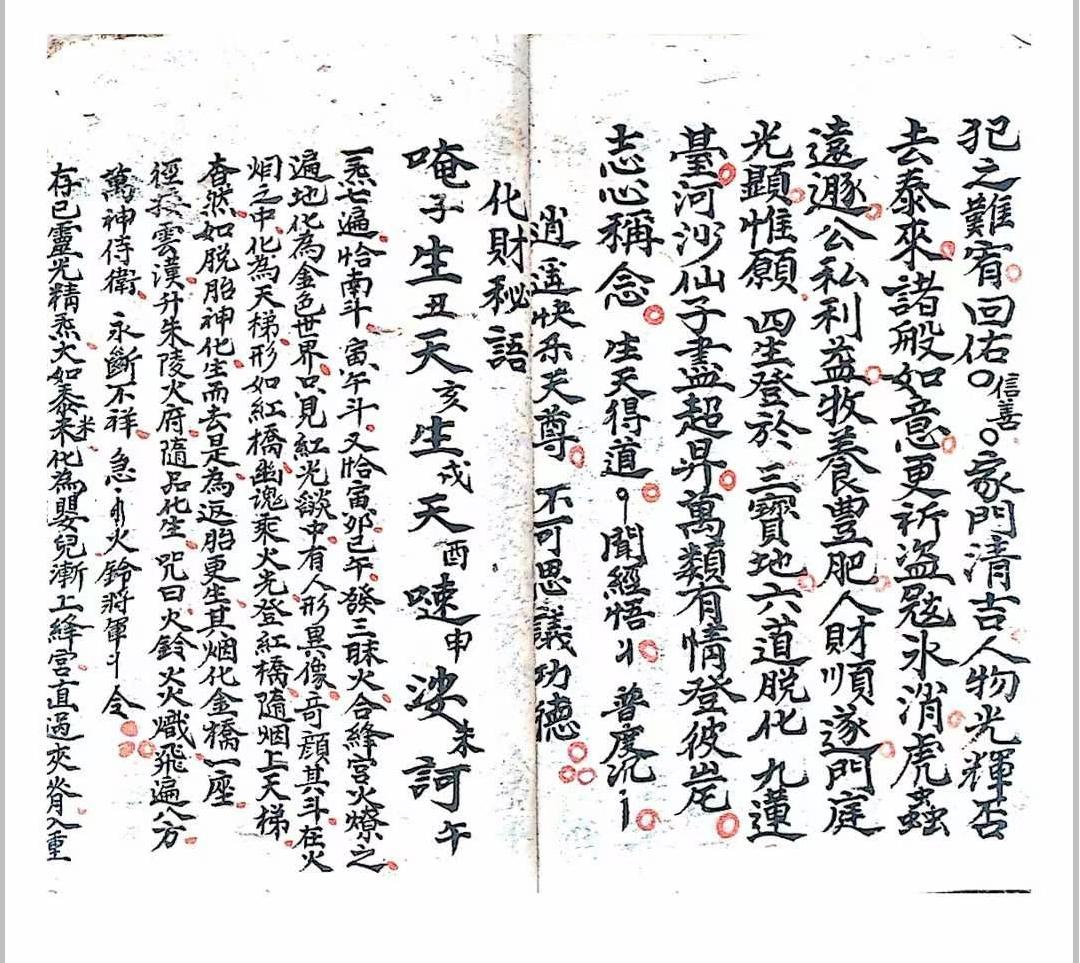 犯之難宥回佑○信善○家門清吉人物光輝否
去泰來諸般如意更祈盜冦氷消虎蟲
遠遯公私利益牧養豊肥人財順遂門庭
光顯惟願四生登於三寶地六道脫化九蓮
臺河沙仙子盡超昇萬類有情登彼岸
志心稱念生天得道聞經悟普度沉
逍遥快樂天尊不可思議功德
化財秘語
唵子生丑天亥生戌天酉㖶申娑未訶午
一炁七遍恰南斗寅午斗又恰寅卯巳午發三昧火合絳宮火燎之
遍地化為金色世界只見紅光燄中有人形異像奇顔其斗在火
烟之中化為天梯形如紅橋幽魂乘火光登紅橋隨烟上天梯
杳然如脫胎神化生而去是為返胎更生其烟化金橋一座
徑接雲漢升朱陵火府隨品化生咒曰火鈴火火熾飛遍八方
萬神侍衛永斷不祥急火鈴將軍令
存已靈光精炁大如黍米化為嬰兒漸上絳宮直過夾脊入重